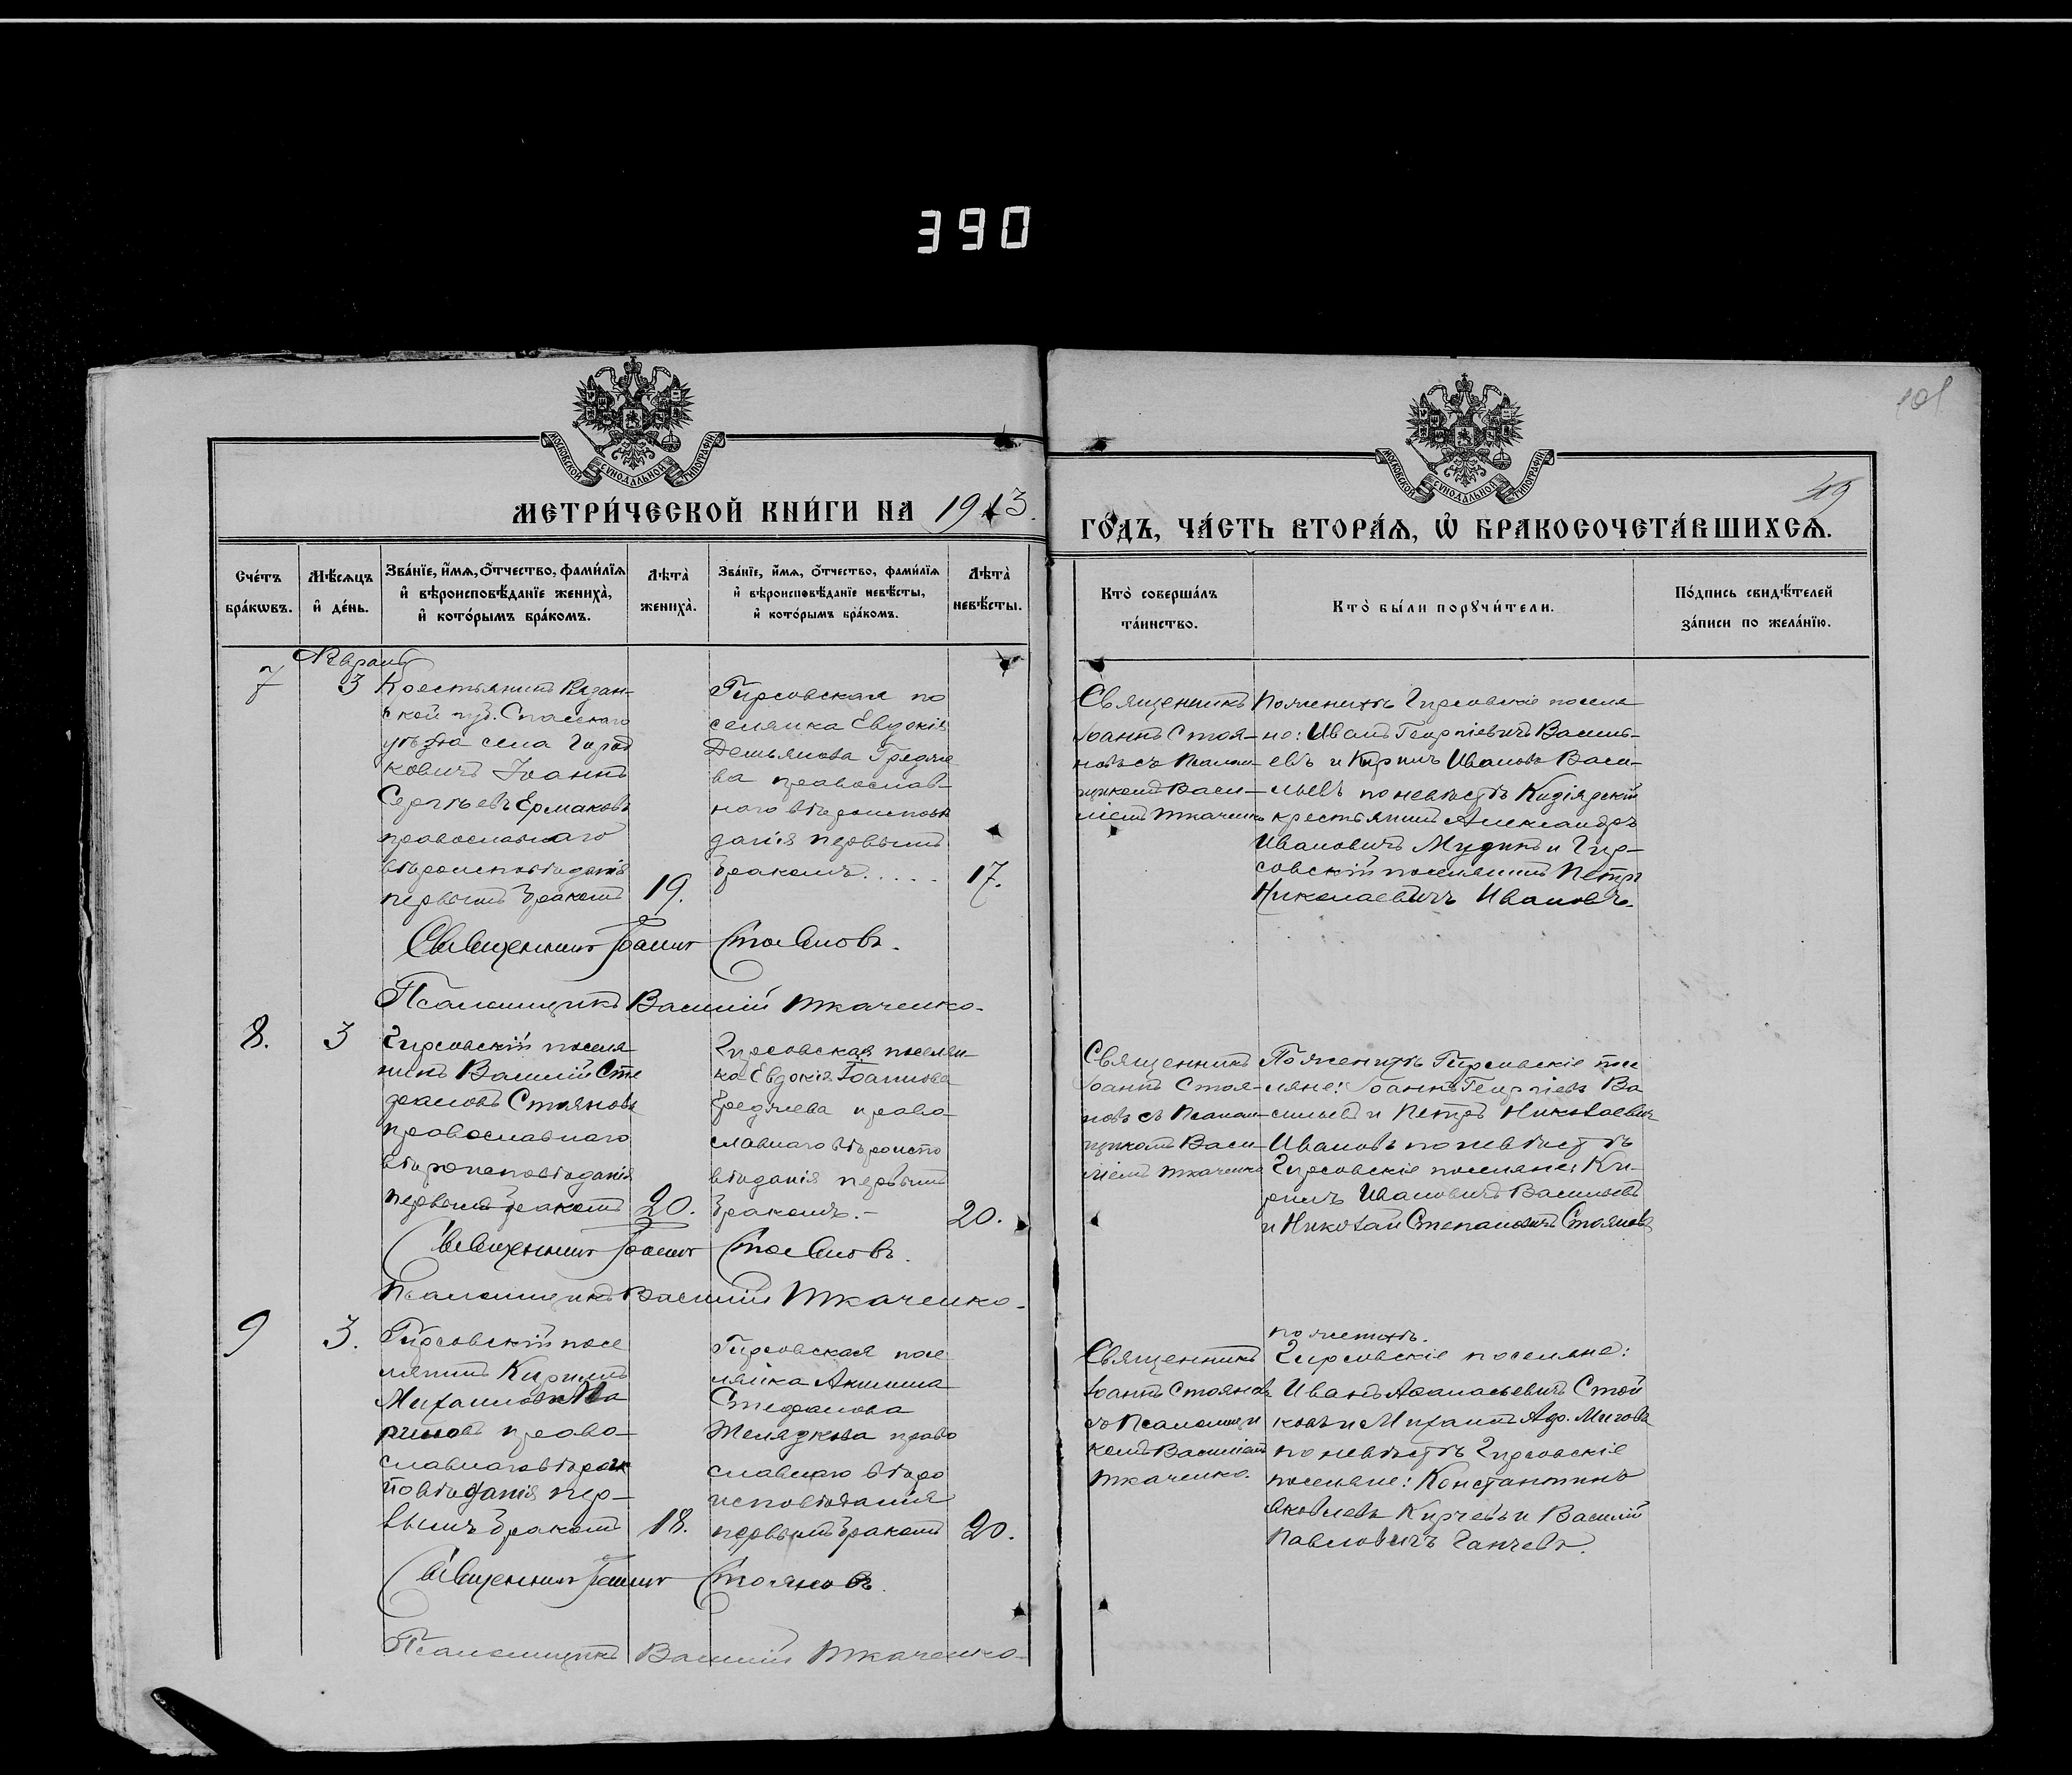 390
101
49
МОСКОВСКОЙ СѴНОДАЛЬНОЙ ТИПОГРАФІИ
МОСКОВСКОЙ СѴНОДАЛЬНОЙ ТИПОГРАФІИ
МЕТРИ́ЧЕСКОЙ КНИ́ГИ НА 1913.
ГО́ДЪ, ЧА́СТЬ ВТОРА́Ѧ, Ѡ҆ БРАКОСОЧЕТА́ВШИХСѦ.
Сче́тъ бра́кѡвъ.
Мѣ́сѧцъ и҆ де́нь.
Зва́нїе, и҆́мѧ, ѻ҆́тчество, фами́лїѧ
и҆ вѣроисповѣ́данїе жениха̀,
и҆ кото́рымъ бра́комъ.
Лѣта̀ жениха̀.
Зва́нїе, и҆́мѧ, ѻ҆́тчество, фами́лїѧ
и҆ вѣроисповѣ́данїе невѣ́сты,
и҆ кото́рымъ бра́комъ.
Лѣта̀ невѣ́сты.
Кто̀ соверша́лъ та́инство.
Кто̀ бы́ли порꙋчи́тели.
По́дпись свидѣ́телей
за́писи по жела́нїю.
7
3
Крестьянинъ Рязан-
ской губ. Спасскаго
уѣзда села Город
ковичъ Іоаннъ
Сергѣевъ Ермаковъ
православнаго
вѣроисповѣданія
первымъ бракомъ
19.
Гирсовская по
селянка Евдокія
Демьянова
ва православ-
наго вѣроисповѣ
данія первымъ
бракомъ.....
17.
Священникъ
Іоаннъ Стоя-
новъ съ Псалом-
щикомъ Васи-
ліемъ Ткаченко
По женихѣ Гирсовскіе поселя
не: Иванъ Георгіевичъ Василь-
евъ и Кирилъ Ивановъ Васи-
льевъ по невѣстѣ
крестьянинъ Александръ
Ивановичъ и Гир-
совскій поселянинъ Петръ
Николаевичъ Ивановъ.
Священникъ Іоаннъ Стояновъ.
Псаломщикъ Василій Ткаченко.
8.
3
Гирсовскій поселя
нинъ Василій Сте
фановъ Стояновъ
православнаго
вѣроисповѣданія
первымъ бракомъ
20.
Гирсовская поселян-
ка Евдокія Іоаннова
право-
славнаго вѣроиспо
вѣданія первымъ
бракомъ.-
20.
Священникъ
Іоаннъ Стоя-
новъ съ Псалом-
щикомъ Васи-
ліемъ Ткаченко
По женихѣ Гирсовскіе посе
ляне: Іоаннъ Георгіевъ Ва
сильевъ и Петръ Николаевичъ
Ивановъ по невѣстѣ
Гирсовскіе поселяне: Ки-
рилъ Ивановичъ Васильевъ
и Николай Степановичъ Стояновъ
Священникъ Іоаннъ Стояновъ.
Псаломщикъ Василій Ткаченко.
9
3.
Гирсовскій посе
лянинъ Кириллъ
Михаиловъ
право-
славнаго вѣроис
повѣданія пер-
вымъ бракомъ
18.
Гирсовская посе
лянка Акилина
Стефанова
Желяскова право
славнаго вѣро
исповѣданія
первымъ бракомъ
20.
Священникъ
Іоаннъ Стояновъ
съ Псаломщи
комъ Василіемъ
Ткаченко.
по женихѣ.
Гирсовскіе поселяне:
Иванъ Афанасьевичъ Стой
ковъ и Михаилъ
по невѣстѣ Гирсовскіе
поселяне: Константинъ
Яковлевъ Кирчевъ и Василій
Павловичъ Ганчевъ.
Священникъ Іоаннъ Стояновъ.
Псаломщикъ Василій Ткаченко.